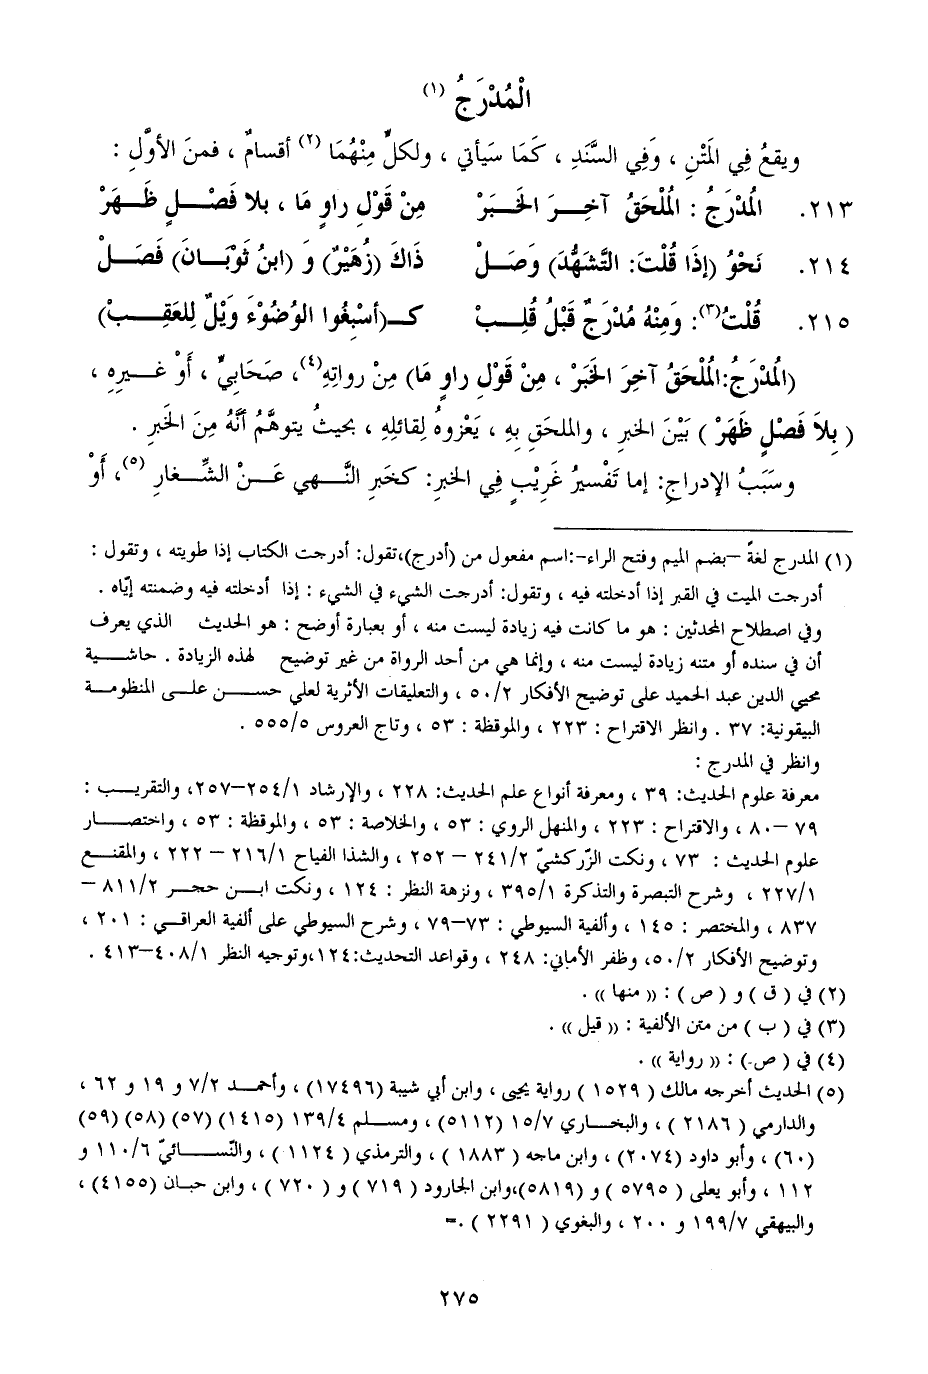 الْمُدْرَجُ (١)
ويقعُ فِي المَتْنِ ، وَفِي السَّنَدِ ، كَمَا سَيأتي ، ولكلٍّ مِنْهُمَا (٢) أقسامٌ ، فمنَ الأوَّلِ :
٢١٣. المُدْرَجُ : المُلْحَقُ آخِرَ الخَبَرْ مِنْ قَوْلِ راوٍ مَا ، بلا فَصْلٍ ظَهَرْ
٢١٤. نَحْوُ (إذَا قُلْتَ: التَّشَهُّدَ) وَصَلْ ذَاكَ (زُهَيْرٌ) وَ (ابنُ ثَوْبَانَ) فَصَلْ
٢١٥. قُلْتُ(٣): وَمِنْهُ مُدْرَجٌ قَبْلُ قُلِبْ كـ(أسْبِغُوا الوُضُوْءَ وَيْلٌ لِلعَقِبْ)
(المُدْرَجُ:المُلْحَقُ آخِرَ الخَبَرْ ، مِنْ قَوْلِ راوٍ مَا) مِنْ رواتِهِ(٤)، صَحَابيٍّ ، أَوْ غيرِهِ ،
( بِلاَ فَصْلٍ ظَهَرْ ) بَيْنَ الخبرِ ، والملحَقِ بِهِ ، يَعْزوهُ لِقائلِهِ ، بحيثُ يتوهَّمُ أنَّهُ مِنَ الخبرِ .
وسَبَبُ الإدراجِ: إما تَفْسيرُ غَريْبٍ فِي الخبرِ: كخبرِ النَّهي عَنْ الشِّغارِ (٥)، أَوْ
(١) المدرج لغةً –بضم الميم وفتح الراء–:اسم مفعول من (أدرج)،تقول: أدرجت الكتاب إذا طويته ، وتقول :
أدرجت الميت في القبر إذا أدخلته فيه ، وتقول: أدرجت الشيء في الشيء : إذا أدخلته فيه وضمنته إيّاه .
وفي اصطلاح المحدثين : هو ما كانت فيه زيادة ليست منه ، أو بعبارة أوضح : هو الحديث الذي يعرف
أن في سنده أو متنه زيادة ليست منه ، وإنما هي من أحد الرواة من غير توضيح لهذه الزيادة . حاشية
محيي الدين عبد الحميد على توضيح الأفكار ٥٠/٢ ، والتعليقات الأثرية لعلي حسن على المنظومة
البيقونية: ٣٧ . وانظر الاقتراح : ٢٢٣ ، والموقظة : ٥٣ ، وتاج العروس ٥٥٥/٥ .
وانظر في المدرج :
معرفة علوم الحديث: ٣٩ ، ومعرفة أنواع علم الحديث: ٢٢٨ ، والإرشاد ٢٥٤/١–٢٥٧، والتقريب :
٧٩ –٨٠ ، والاقتراح : ٢٢٣ ، والمنهل الروي : ٥٣ ، والخلاصة : ٥٣ ، والموقظة : ٥٣ ، واختصار
علوم الحديث : ٧٣ ، ونكت الزّركشيّ ٢٤١/٢ – ٢٥٢ ، والشذا الفياح ٢١٦/١ – ٢٢٢ ، والمقنع
٢٢٧/١ ، وشرح التبصرة والتذكرة ٣٩٥/١ ، ونزهة النظر : ١٢٤ ، ونكت ابن حجر ٨١١/٢ –
٨٣٧ ، والمختصر : ١٤٥ ، وألفية السيوطي : ٧٣–٧٩ ، وشرح السيوطي على ألفية العراقي : ٢٠١ ،
وتوضيح الأفكار ٥٠/٢، وظفر الأماني: ٢٤٨ ، وقواعد التحديث:١٢٤،وتوجيه النظر ٤٠٨/١–٤١٣ .
(٢) في ( ق ) و ( ص ) : (( منها )) .
(٣) في ( ب ) من متن الألفية : (( قيل )) .
(٤) في ( ص ) : (( رواية )) .
(٥) الحديث أخرجه مالك ( ١٥٢٩ ) رواية يحيى ، وابن أبي شيبة (١٧٤٩٦) ، وأحمد ٧/٢ و ١٩ و ٦٢ ،
والدارمي ( ٢١٨٦ ) ، والبخاري ١٥/٧ (٥١١٢) ، ومسلم ١٣٩/٤ (١٤١٥) (٥٧) (٥٨) (٥٩)
(٦٠) ، وأبو داود (٢٠٧٤) ، وابن ماجه ( ١٨٨٣ ) ، والترمذي ( ١١٢٤ ) ، والنّسائيّ ١١٠/٦ و
١١٢ ، وأبو يعلى ( ٥٧٩٥ ) و (٥٨١٩)،وابن الجارود ( ٧١٩ ) و ( ٧٢٠ ) ، وابن حبان (٤١٥٥) ،
والبيهقي ١٩٩/٧ و ٢٠٠ ، والبغوي ( ٢٢٩١ ) .=
٢٧٥